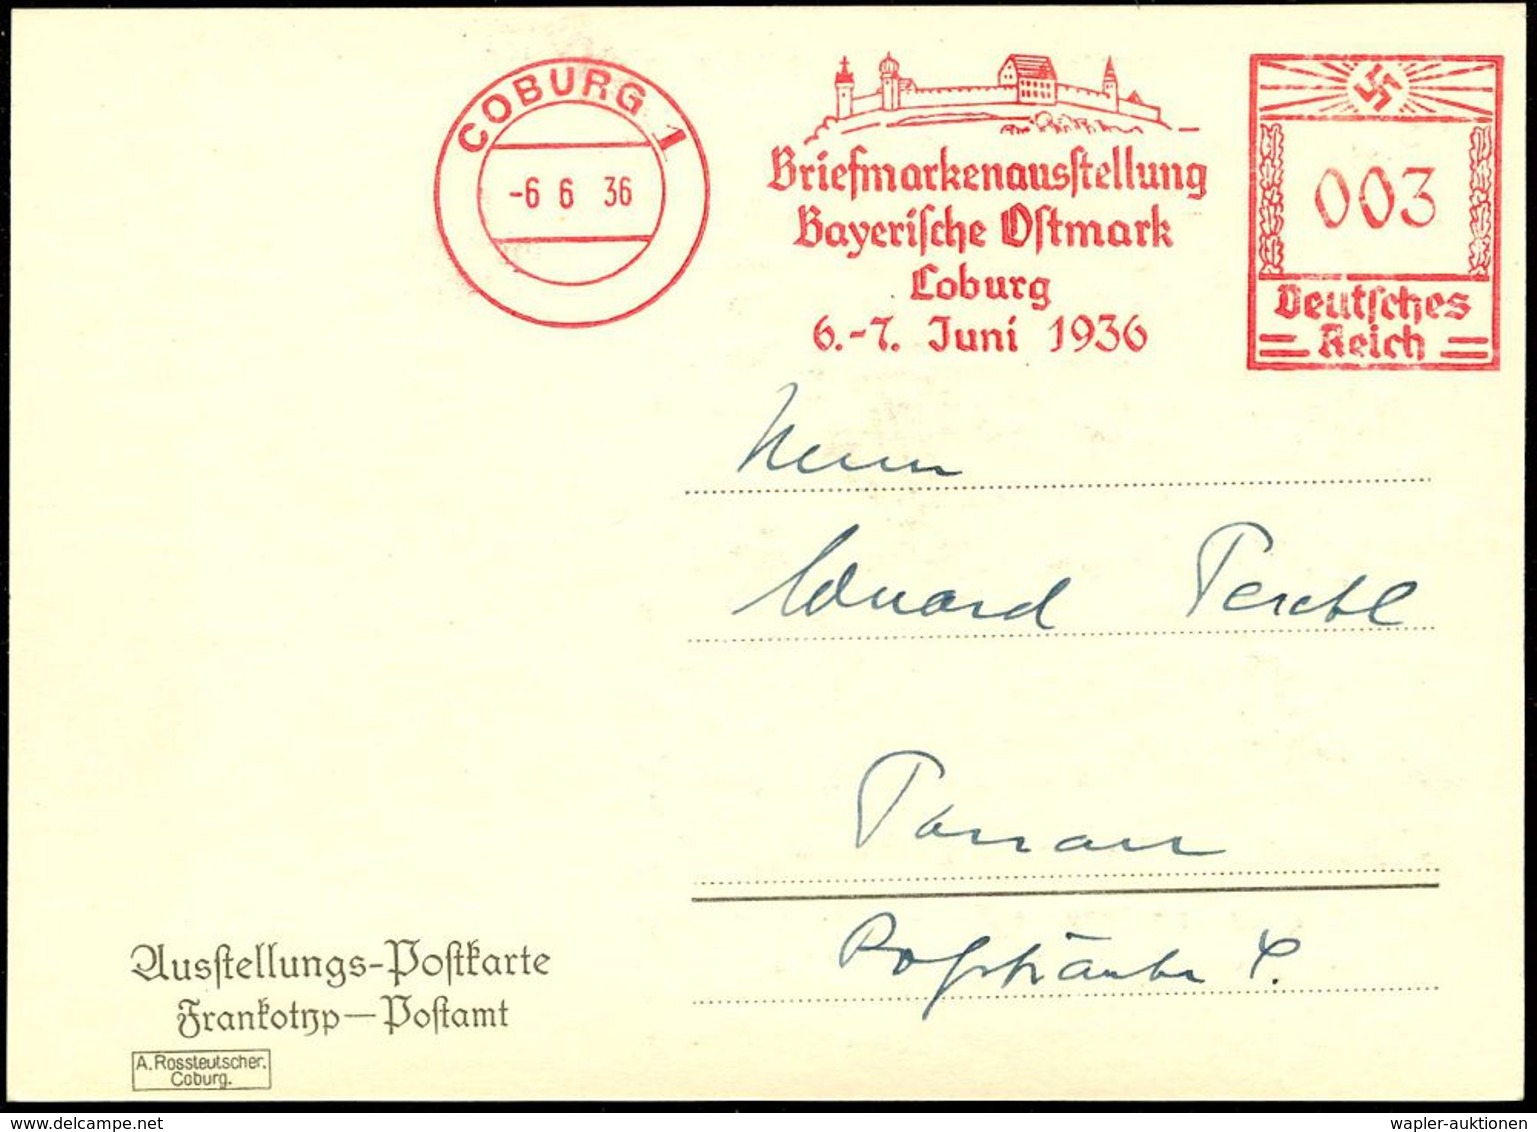 COBURG 1
-6 6 36
Briefmarkenausstellung
Bayerische Ostmark
Coburg
6.-7. Juni 1936
003
Deutsches
Reich
Herrn
Eduard
Ausstellungs-Postkarte
Frankotyp—Postamt
A. Rossteutscher.
Coburg.
wapler-auktionen